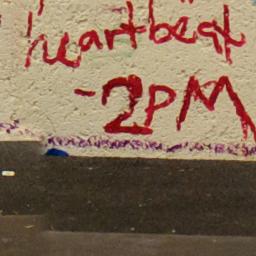 heartbeat
-2PM